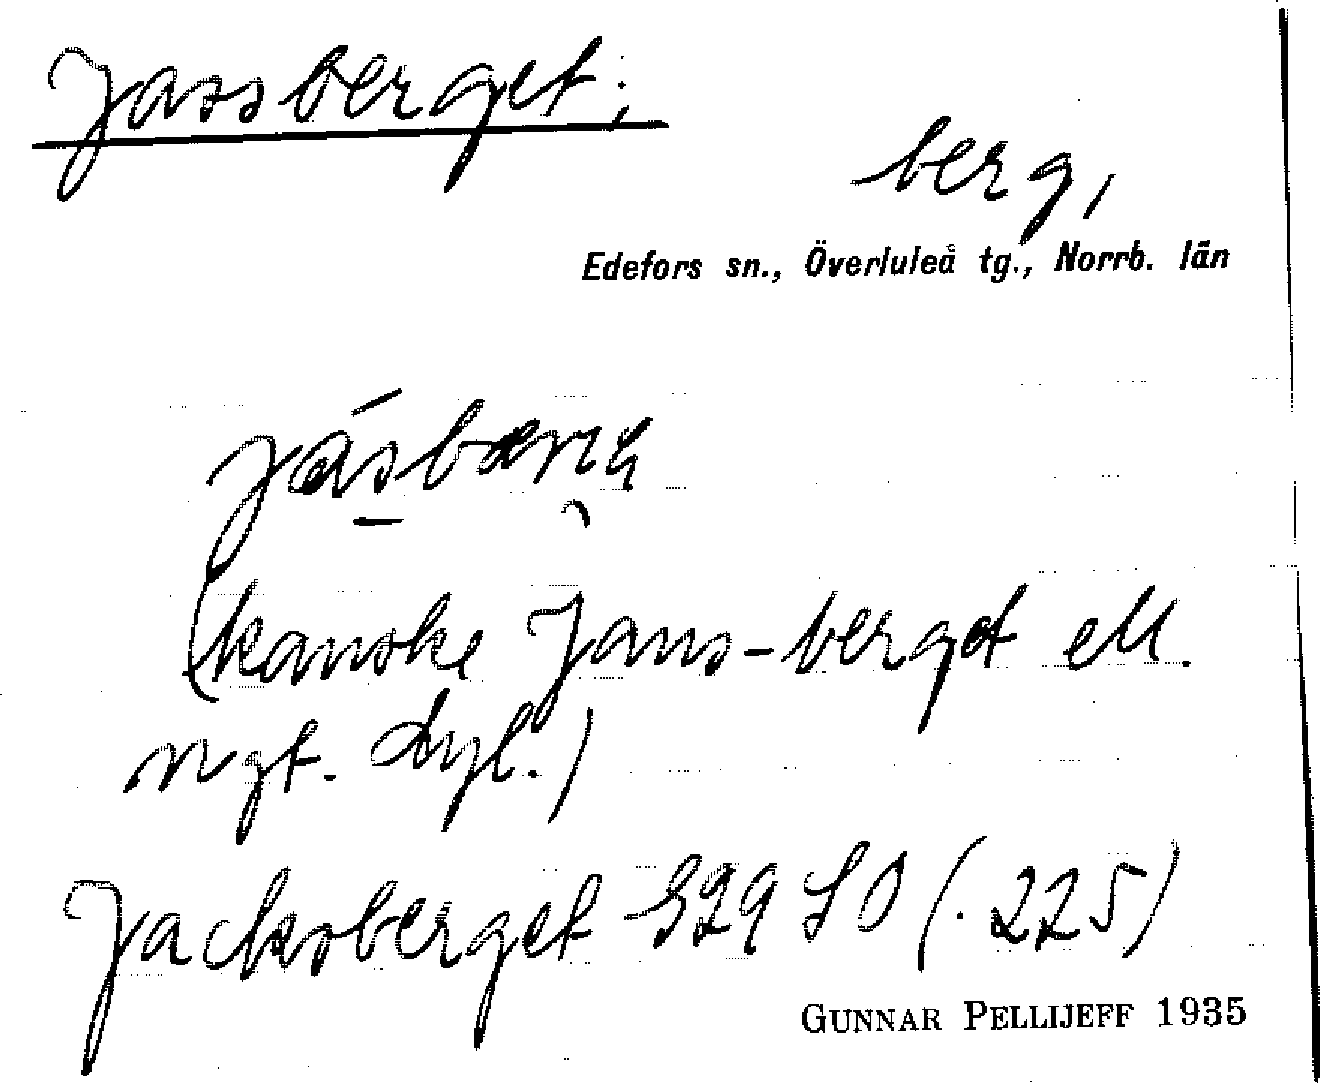 Jassberget;
berg,
Edefors sn., Överluleå tg., Norrb. län
(kanske Jans-berget ell.
ngt. dyl.)
Jacksberget S29 SO (.225)
GUNNAR PELLIJEFF 1935